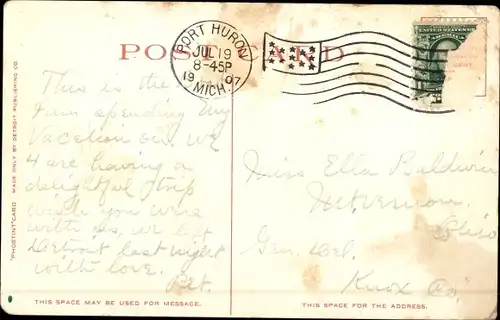 POST CARD
PORT HURON
JUL 19
8-45P
1907
MICH.
This is the
I am spending my
Vacation on, we
4 are having a
delightful trip
wish you were
with us, we left
Detroit last night
with love.
Miss Ella Baldwin
Mt Vernon.
Ohio
Gen. Del.
Knox Co.
"PHOSTINT" CARD MADE ONLY BY DETROIT PUBLISHING CO.
THIS SPACE MAY BE USED FOR MESSAGE.
THIS SPACE IS FOR THE ADDRESS.